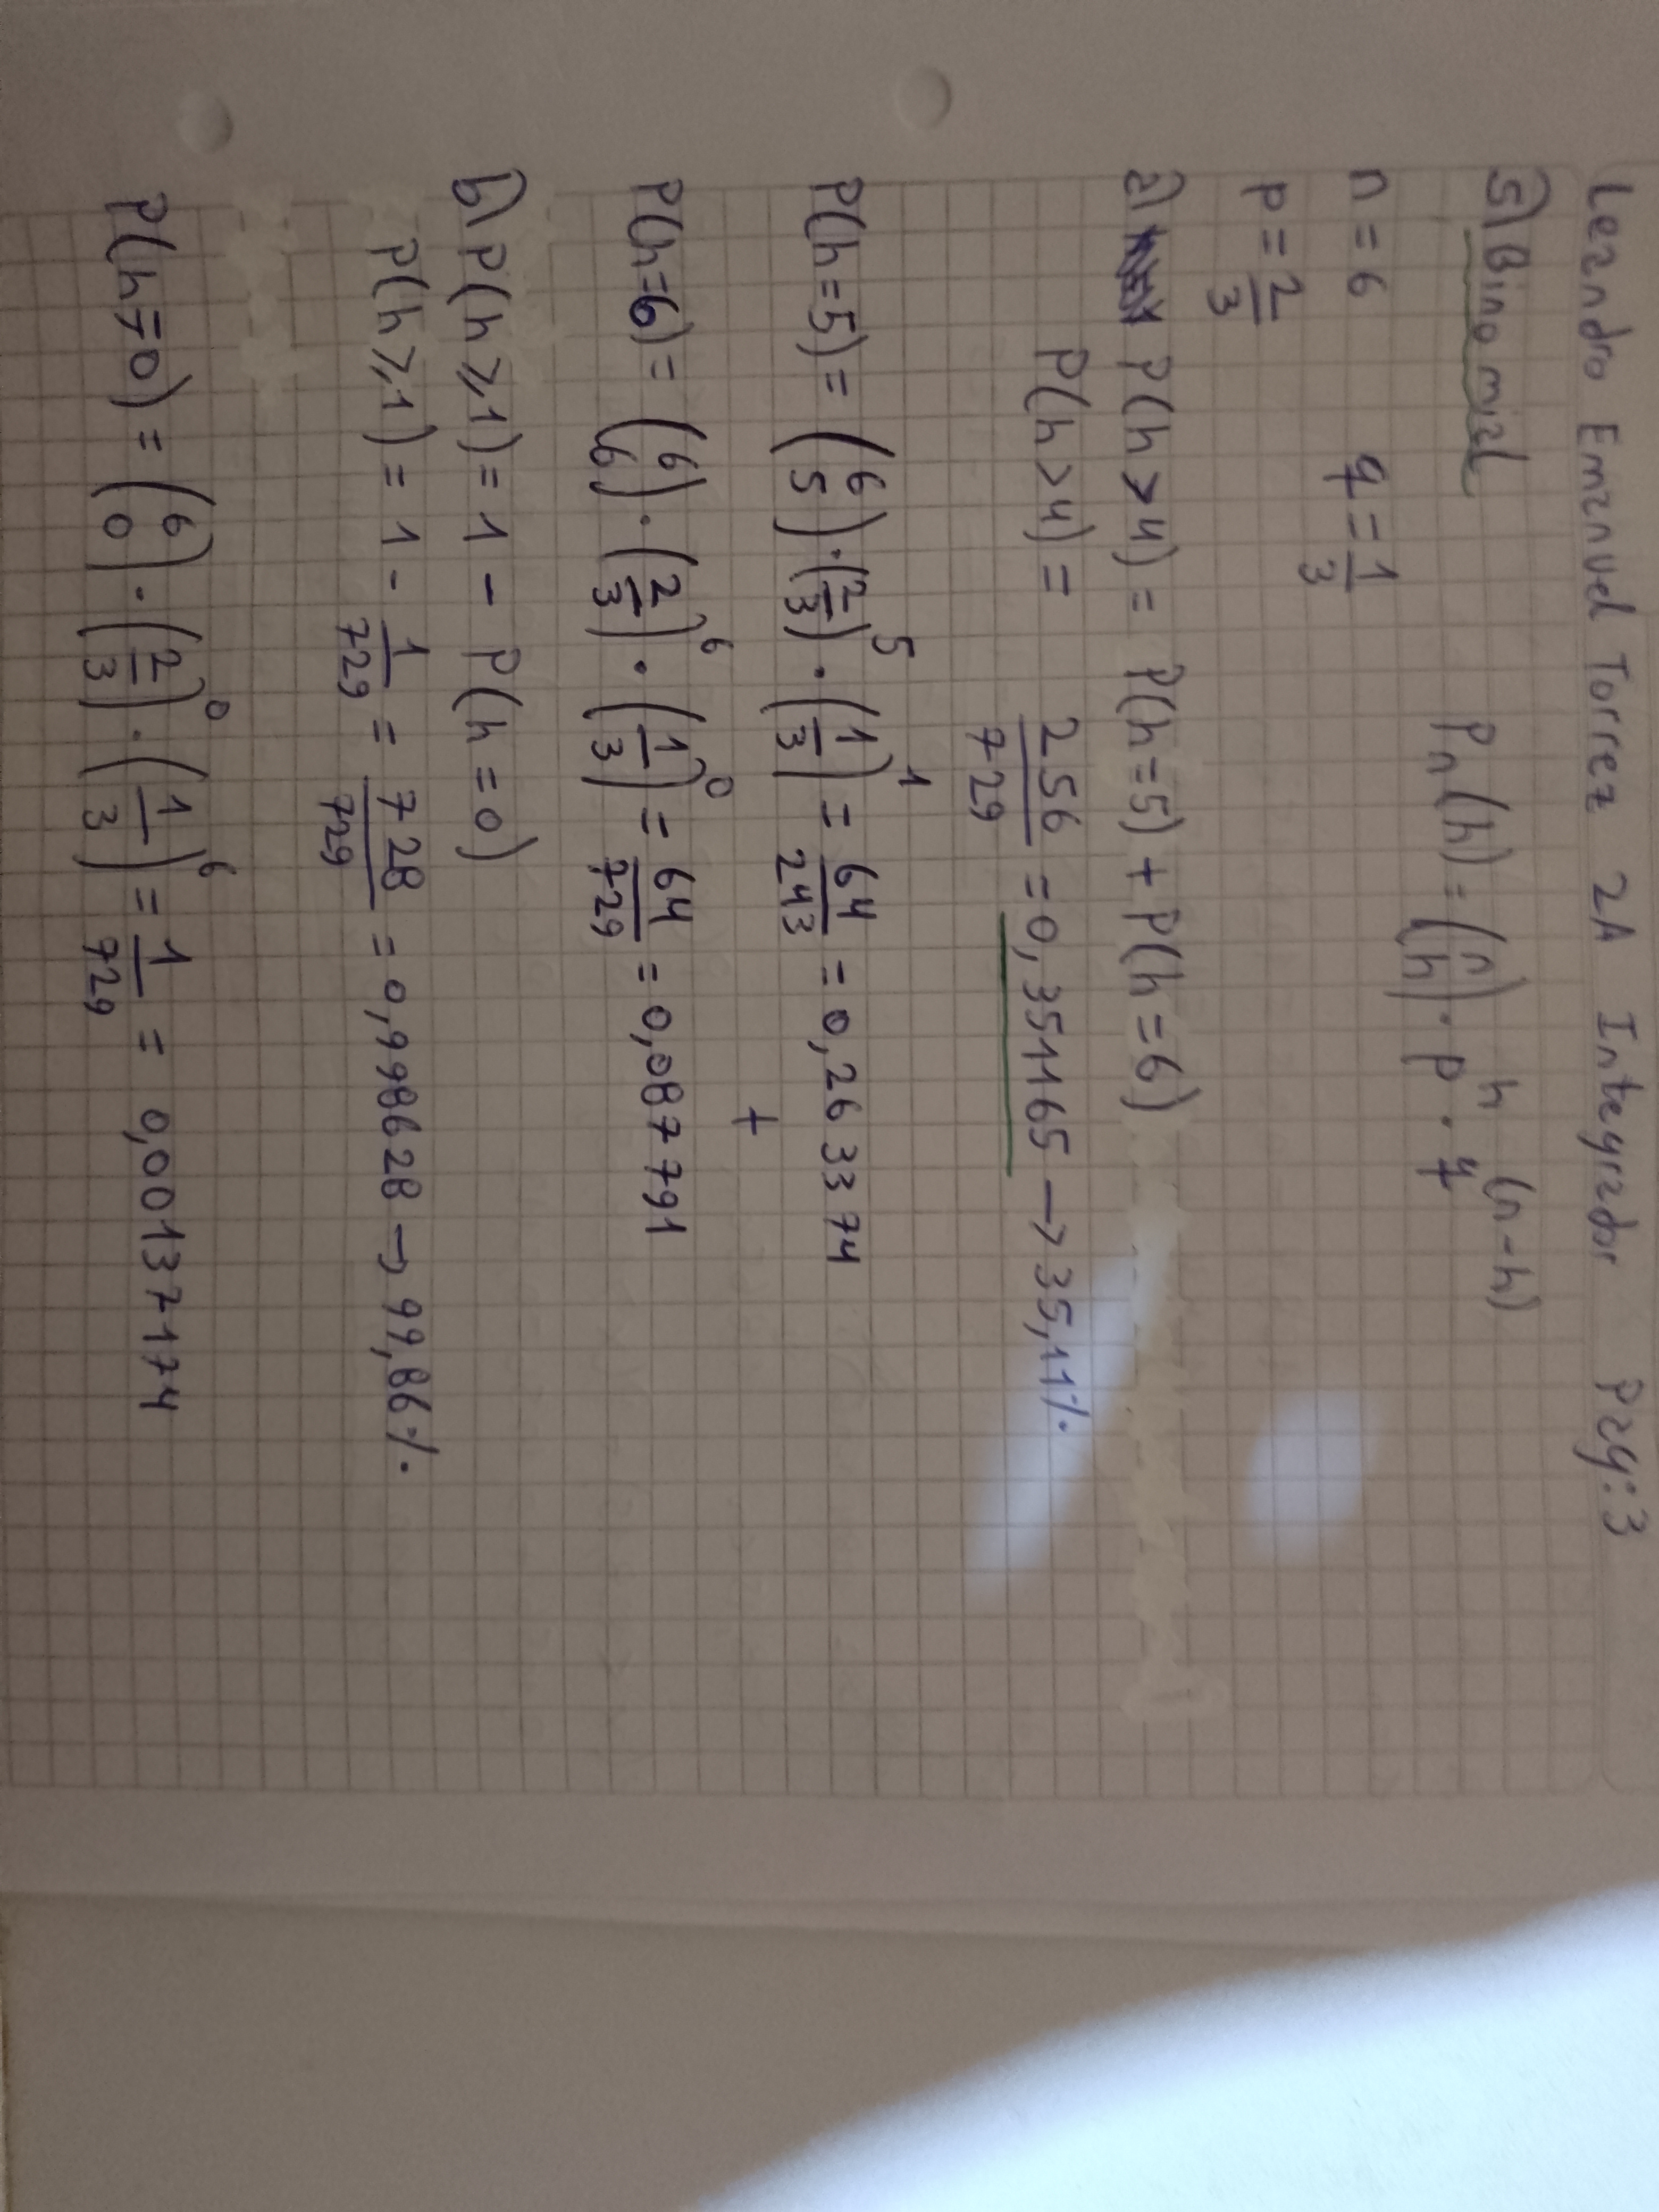 Leandro Emanuel Torrez 2A Integrador Pag: 3
5) Binomial
Pn(h) = (n h) · p^h · q^(n-h)
n = 6 q = 1/3
p = 2/3
a) P(h > 4) = P(h=5) + P(h=6)
P(h > 4) = 256/729 = 0,351165 → 35,11%
P(h=5) = (6 5) · (2/3)^5 · (1/3)^1 = 64/243 = 0,263374
+
P(h=6) = (6 6) · (2/3)^6 · (1/3)^0 = 64/729 = 0,087791
b) P(h ⩾ 1) = 1 - P(h = 0)
P(h ⩾ 1) = 1 - 1/729 = 728/729 = 0,998628 → 99,86%
P(h=0) = (6 0) · (2/3)^0 · (1/3)^6 = 1/729 = 0,00137174